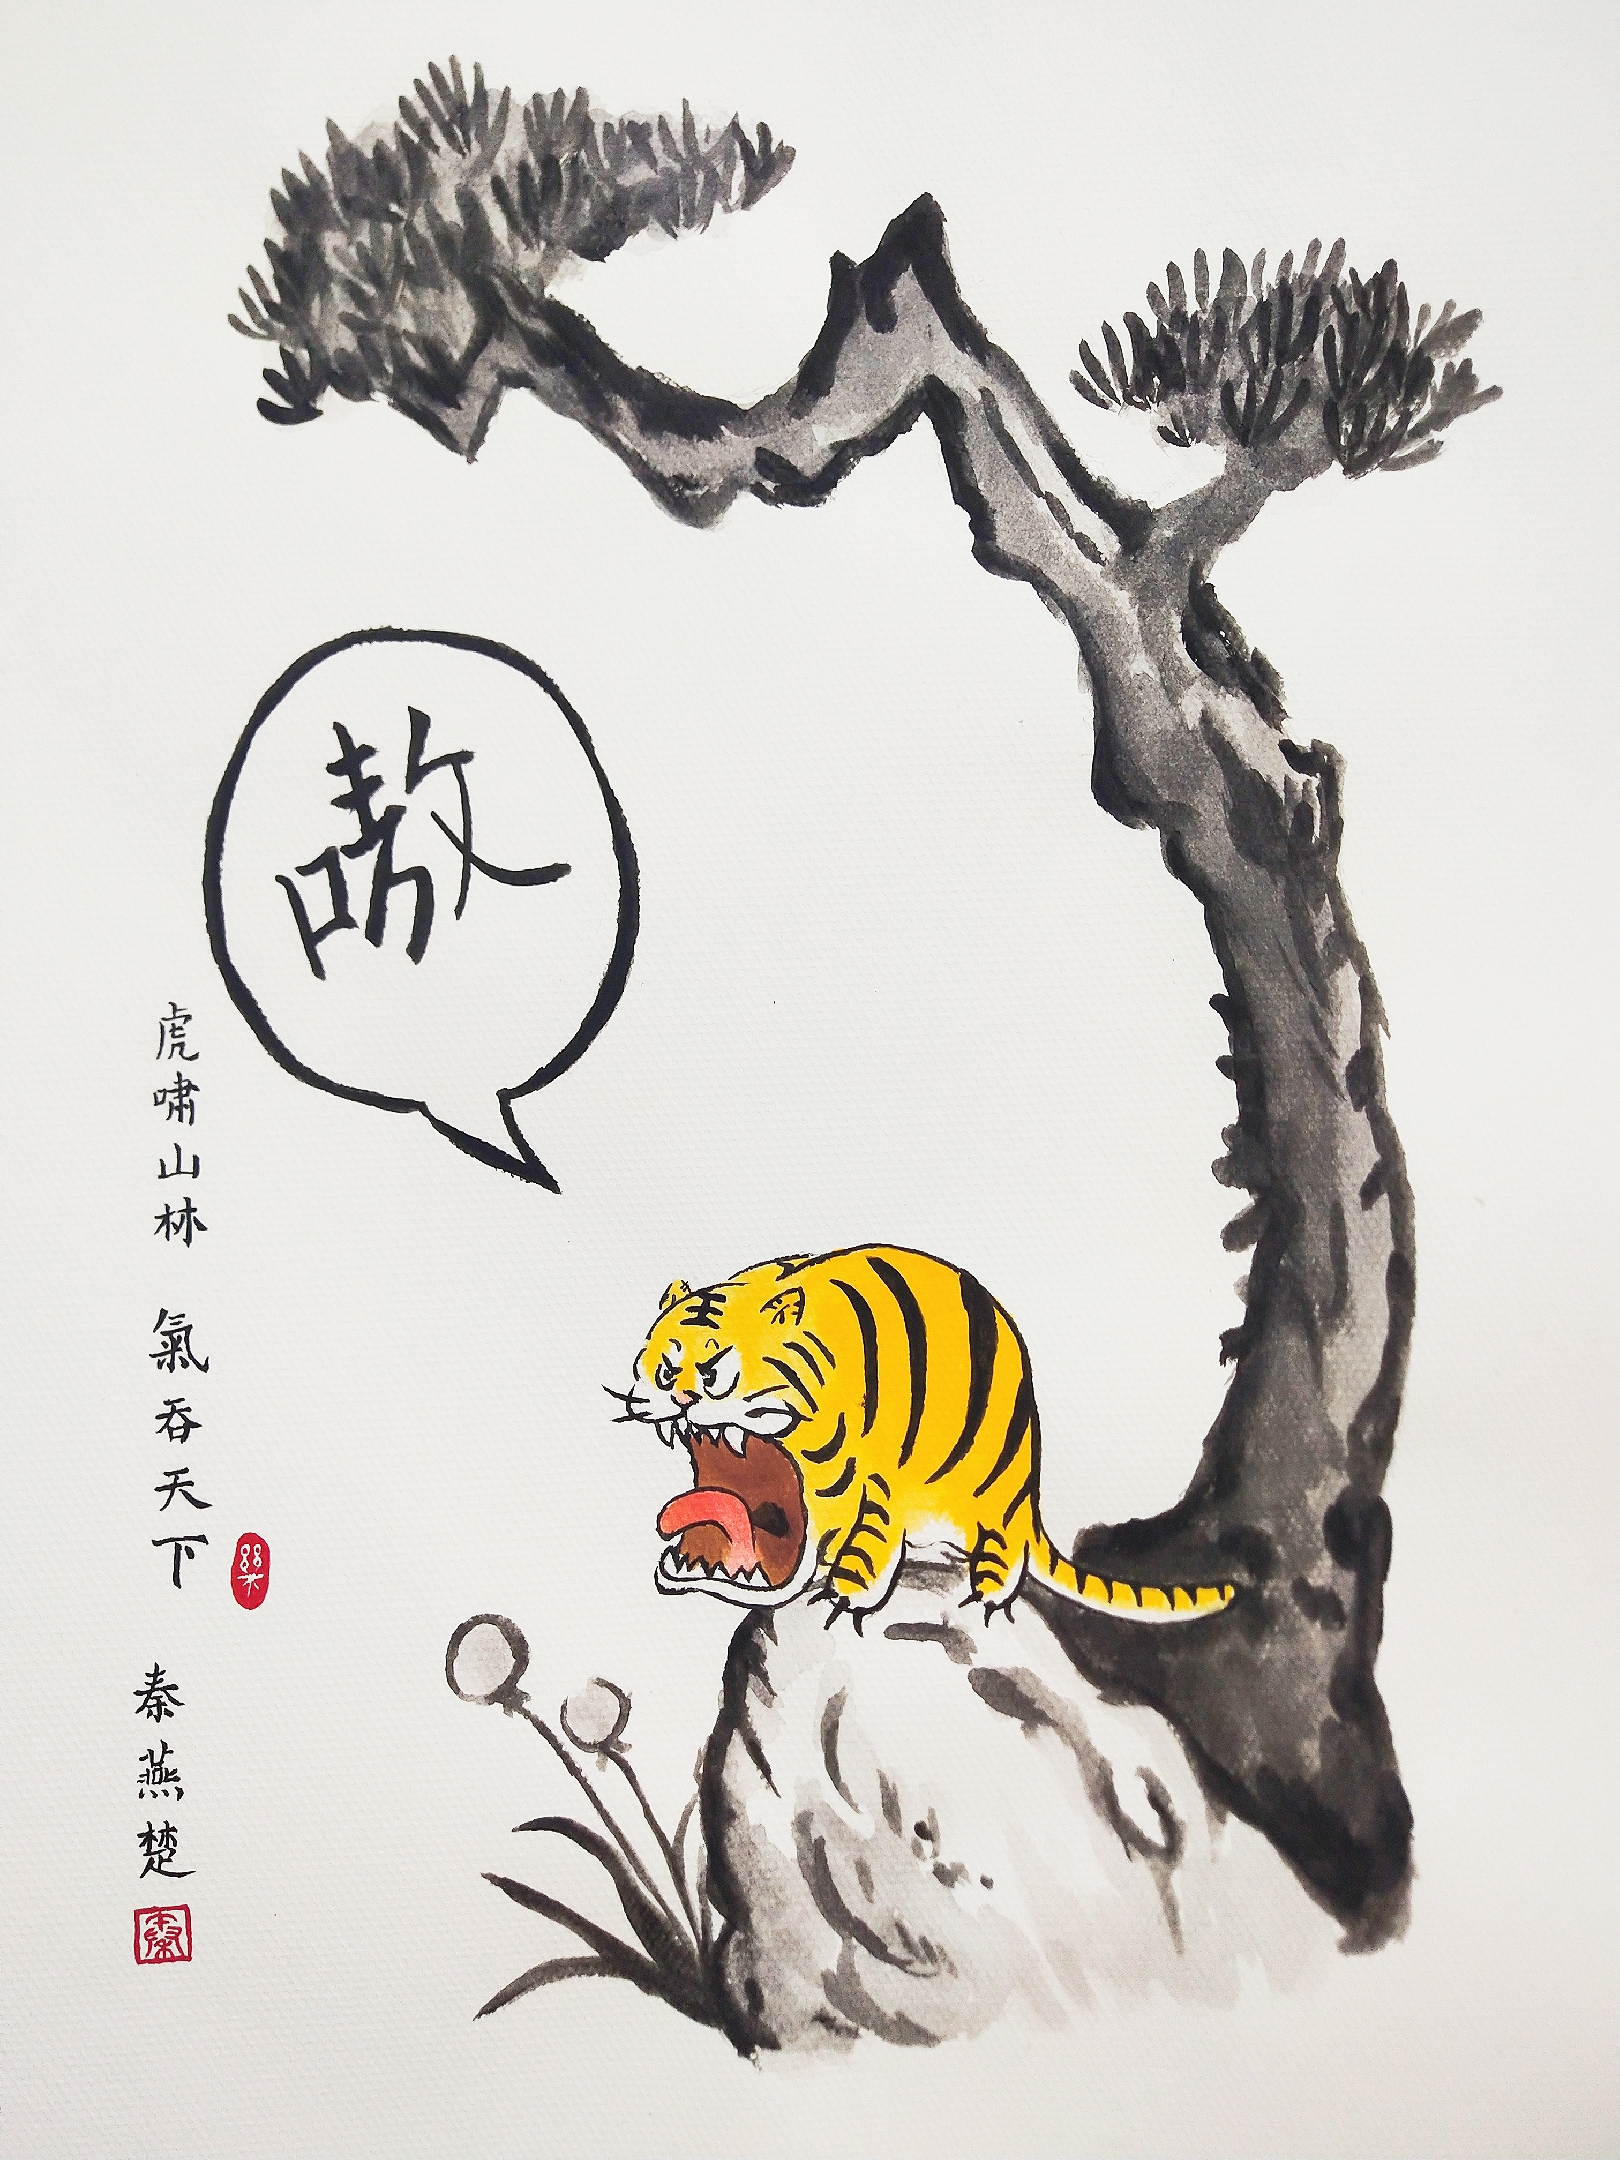 嗷
虎嘯山林 氣吞天下
秦燕楚